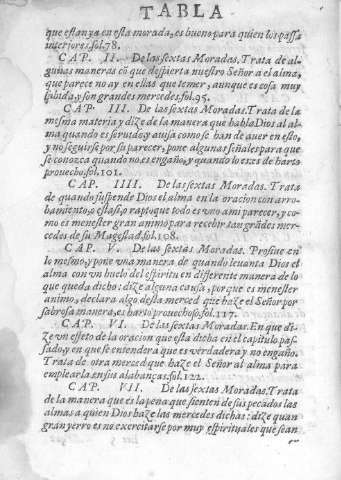 TABLA
que estan ya en esta morada, es bueno para quien los passa
interiores. fol. 78.
CAP. II. De las sextas Moradas, Trata de al-
gunas maneras cõ que despierta nuestro Señor a el alma,
que parece no ay en ellas que temer, aunque es cosa muy
subida, y son grandes mercedes. fol. 95.
CAP. III. De las sextas Moradas. Trata de la
mesma materia y dize de la manera que habla Dios al al-
ma quando es seruido y auisa como se han de auer en esto,
y no seguirse por su parecer, pone algunas señales para que
se conozca quando no es engaño, y quando lo es es de harto
prouecho. fol. 101.
CAP. IIII. De las sextas Moradas. Trata
de quando suspende Dios el alma en la oracion con arro-
bamiento, o estasi, o rapto que todo es vno a mi parecer, y co-
mo es menester gran animo para recebir tan grãdes mer-
cedes de su Magestad. fol. 108.
CAP. V. De las sextas Moradas. Prosiue en
lo mesmo, y pone vna manera de quando leuanta Dios el
alma con vn buelo del espiritu en differente manera de lo
que queda dicho: dize alguna causa, porque es menester
animo, declara algo desta merced que haze el Señor por
sabrosa manera, es harto prouechoso. fol. 117.
CAP. VI. De las sextas Moradas. En que di-
ze vn effeto de la oracion que esta dicha en el capitulo pas-
sado, y en que se entendera que es verdadera y no engaño.
Trata de otra merced que haze el Señor al alma para
emplearla en sus alabanças. fol. 122.
CAP. VII. De las sextas Moradas. Trata
de la manera que es la pena que sienten de sus pecados las
almas a quien Dios haze las mercedes dichas: dize quan
gran yerro es no exercitarse por muy espirituales que sean